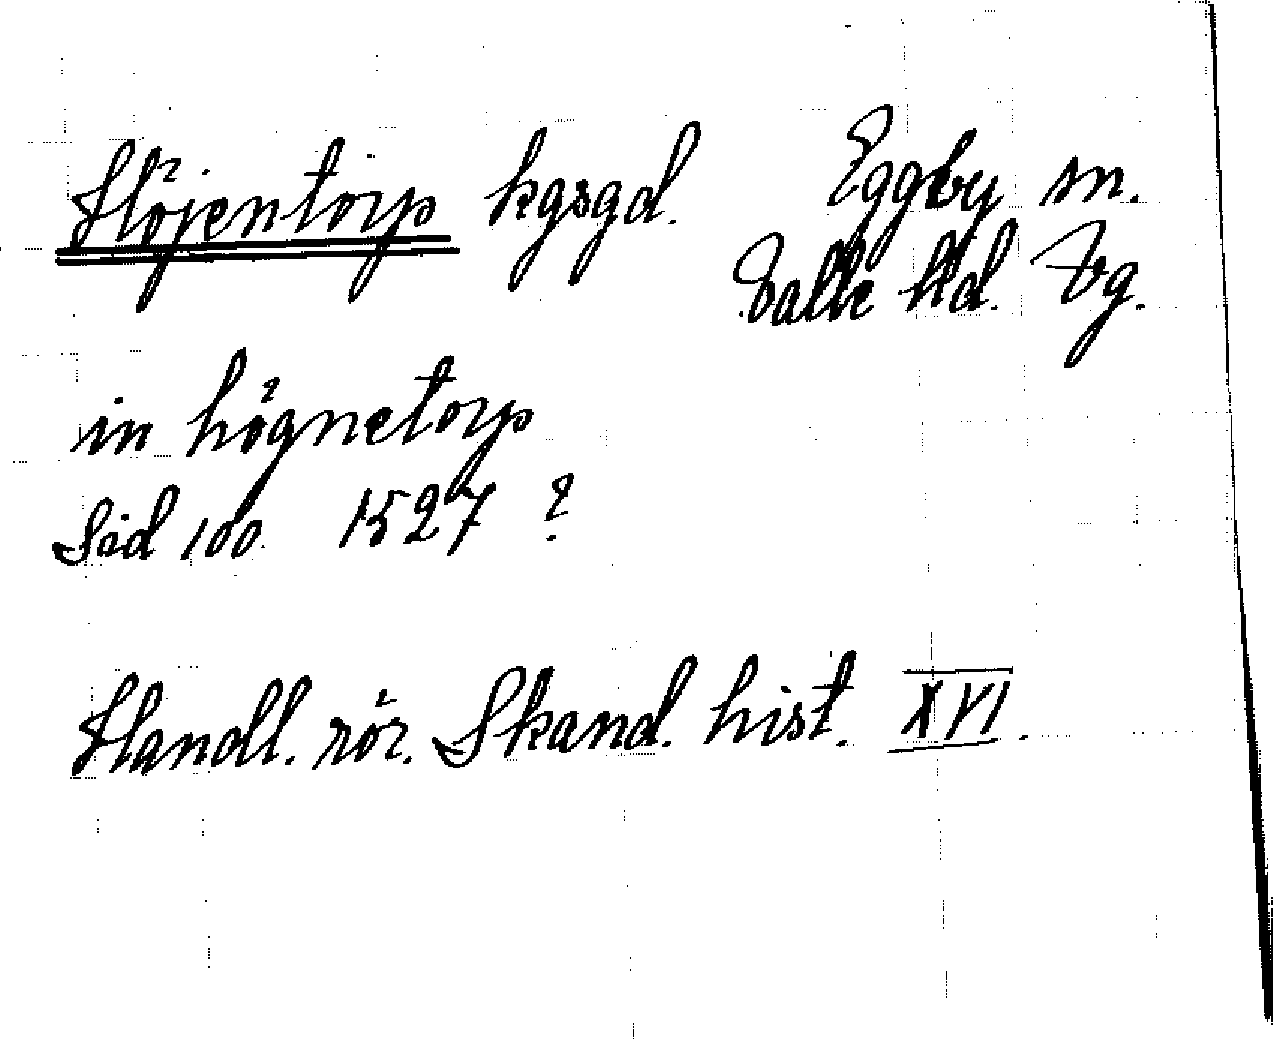 Höjentorp kgsgd. Eggby sn.
Valle hd. Vg.
in högnetorp
Sid 100. 1527 ?
Handl. rör. Skand. hist. XVI.